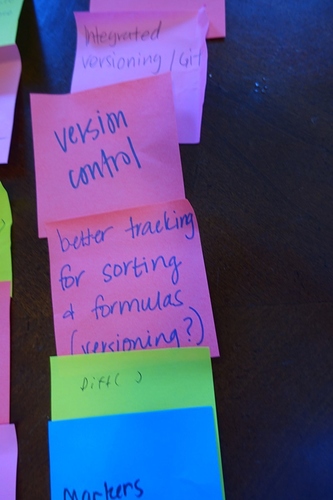 Integrated
versioning / Git
version
control
better tracking
for sorting
& formulas
(versioning?)
Diff( )
Markers